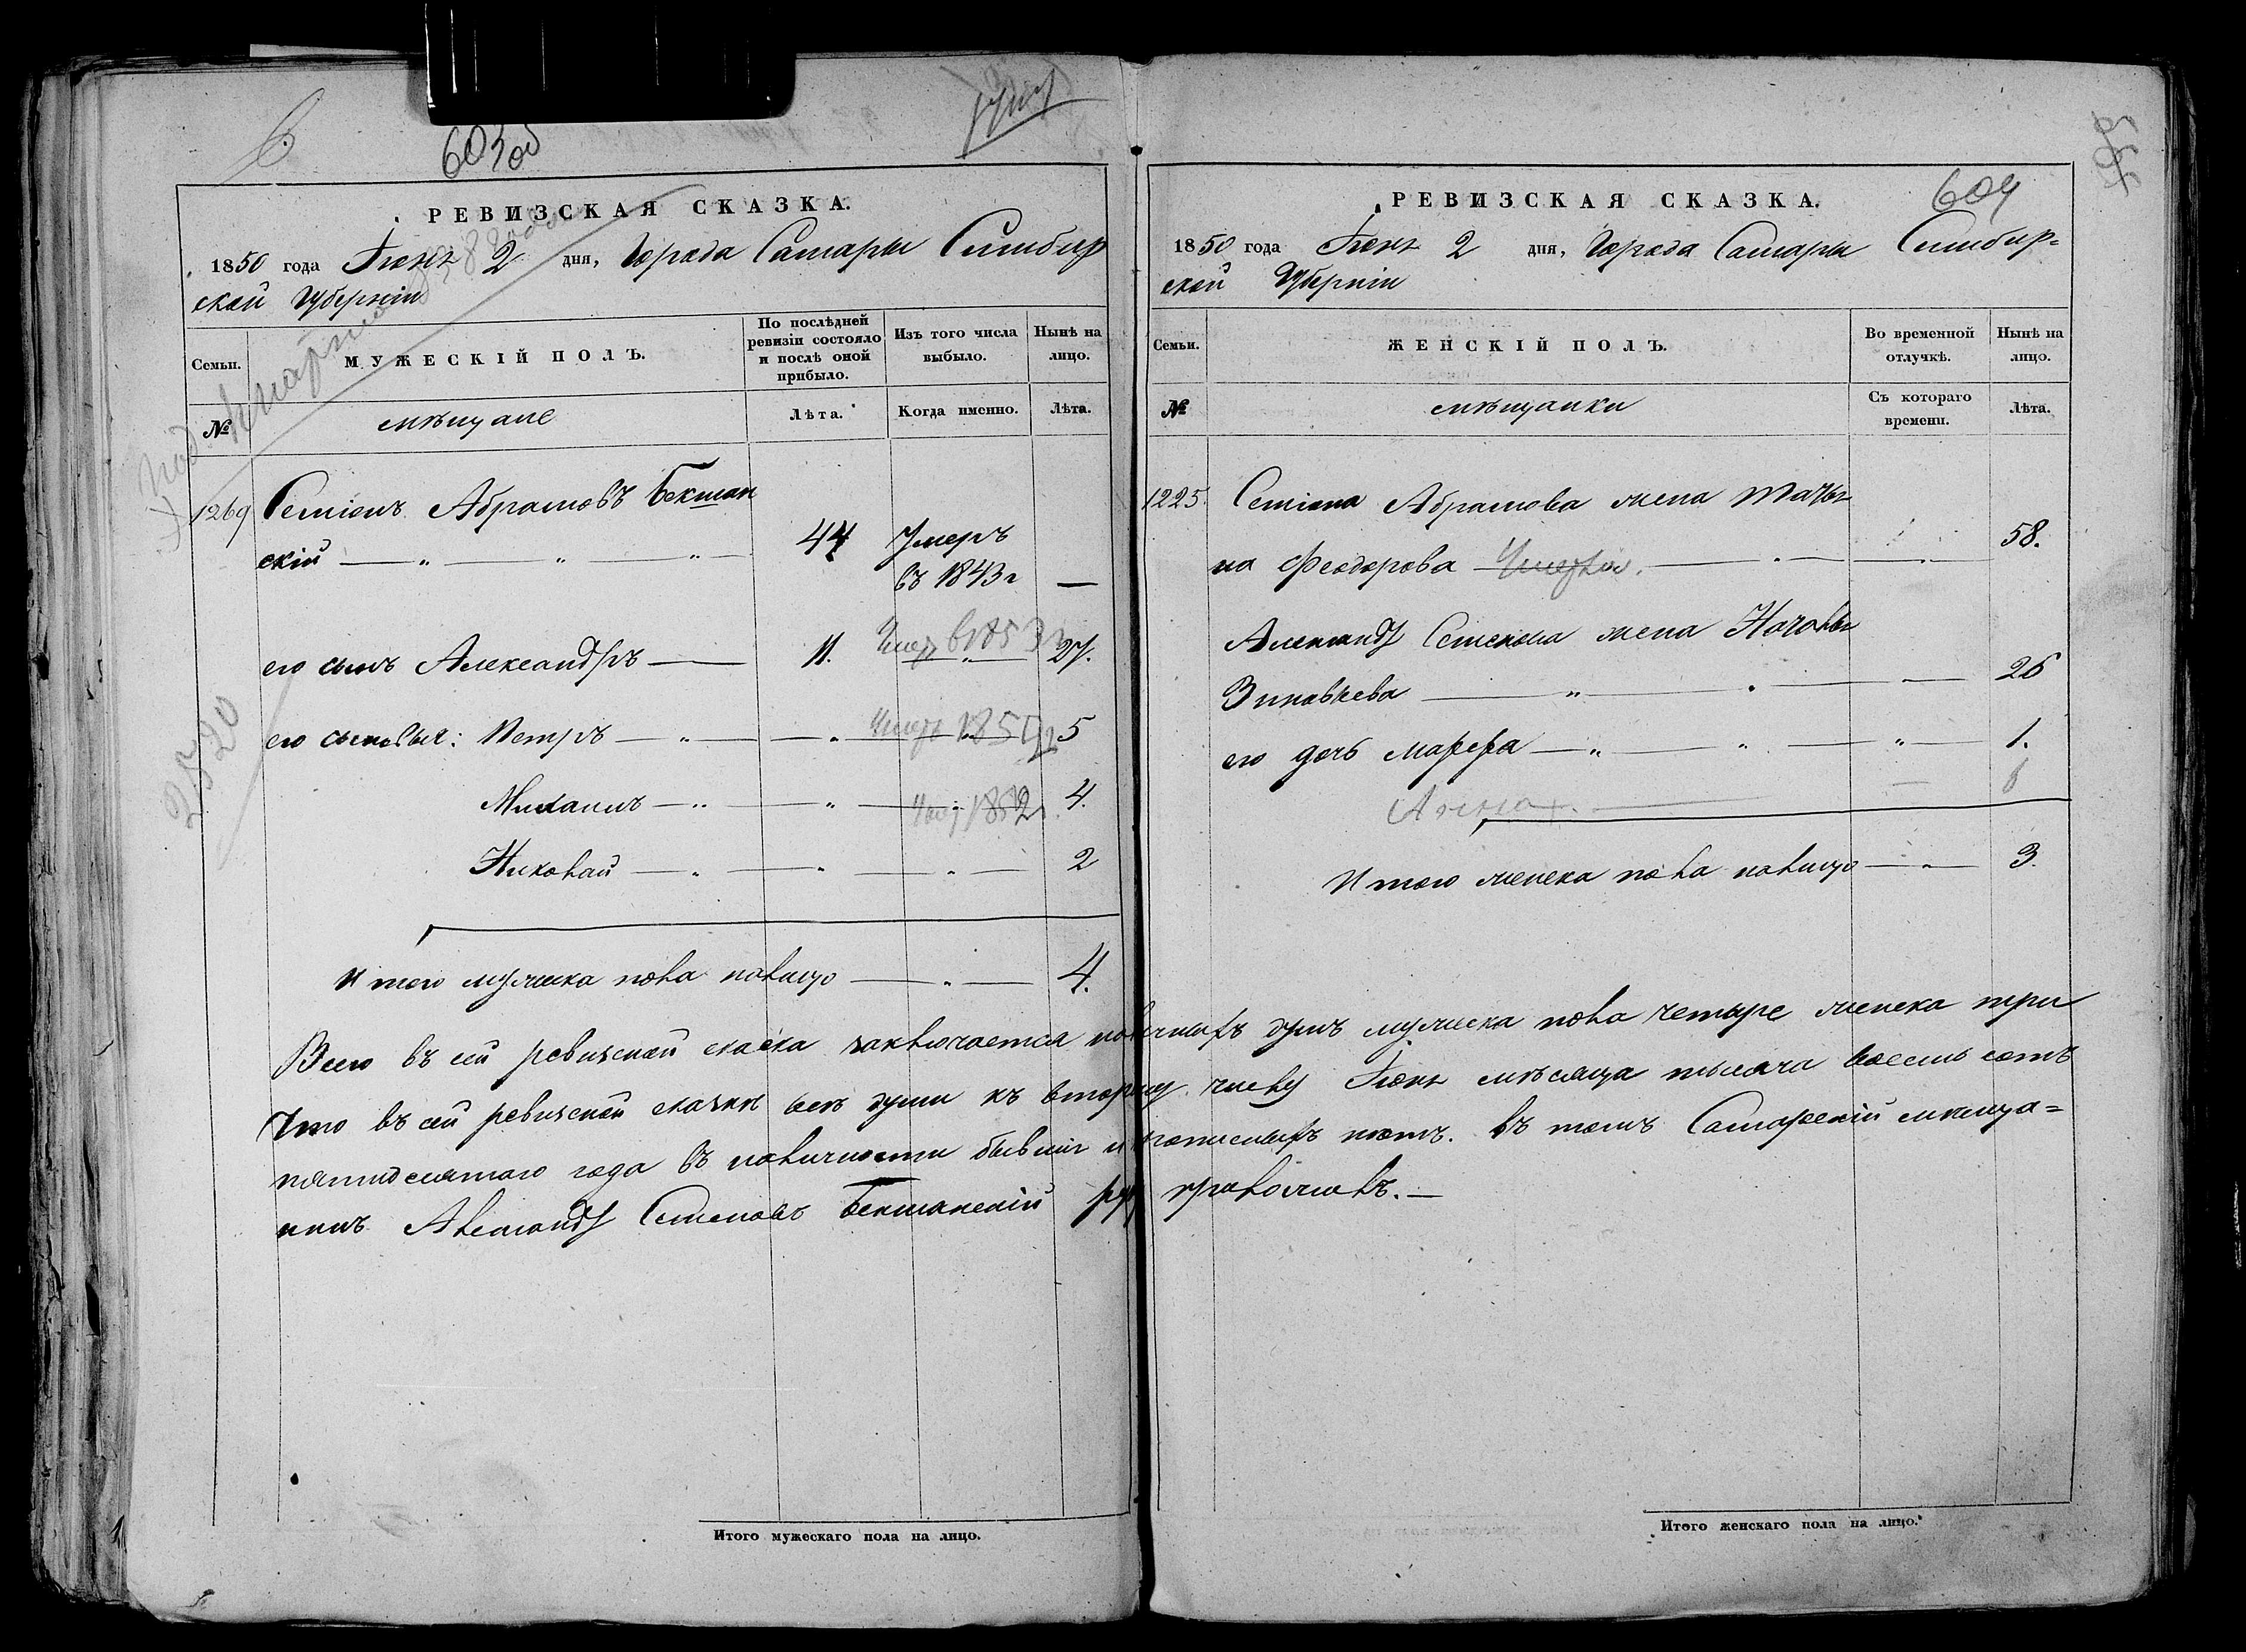 603 об
РЕВИЗСКАЯ СКАЗКА.
1850 года Іюня 2 дня, Города Самары Симбир
ской Губерніи
Семьи.
МУЖЕСКІЙ ПОЛЪ.
По послѣдней ревизіи состояло и послѣ оной прибыло.
Изъ того числа выбыло.
Нынѣ на лицо.
№
мѣщане
Лѣта.
Когда именно.
Лѣта.
1269 Семіонъ Абрамовъ Бекшан
скій 44 Умеръ
въ 1843 г —
его сынъ Александръ — 11. Умер в 1853 27.
его сыновья: Петръ — „ — „ Умеръ 185 5
Михаилъ — „ — „ Умер 1852 4.
Николай — „ — „ — „ — 2
Итого мужска пола налицо — „ — 4.
Всего въ сей ревизской скаска заключается наличныхъ душъ мужеска пола четыре женска три
Что въ сей ревизской сказки все души къ второму числу Іюня мѣсяца тысяча восемь сотъ
пятидесятаго года въ наличности бывшіе и написныхъ нетъ. въ томъ Самарский мѣща=
нинъ Александр Семеновъ Бекшанскій руку приложилъ. —
Итого мужескаго пола на лицо.
2520
604
РЕВИЗСКАЯ СКАЗКА.
1850 года Іюня 2 дня, Города Самары Симбир=
ской Губерніи
Семьи.
ЖЕНСКІЙ ПОЛЪ.
Во временной отлучкѣ.
Нынѣ на лицо.
№
мѣщанки
Съ котораго времени.
Лѣта.
1225. Семіона Абрамова жена Татья
на Феодорова Умерла. 58.
Александр Семенова жена Наталья
Зиновьева — „ — 26
его дочь Марфа — „ — „ — „ — 1.
Анна
Итого женска пола налицо — „ — 3.
Итого женскаго пола на лицо.